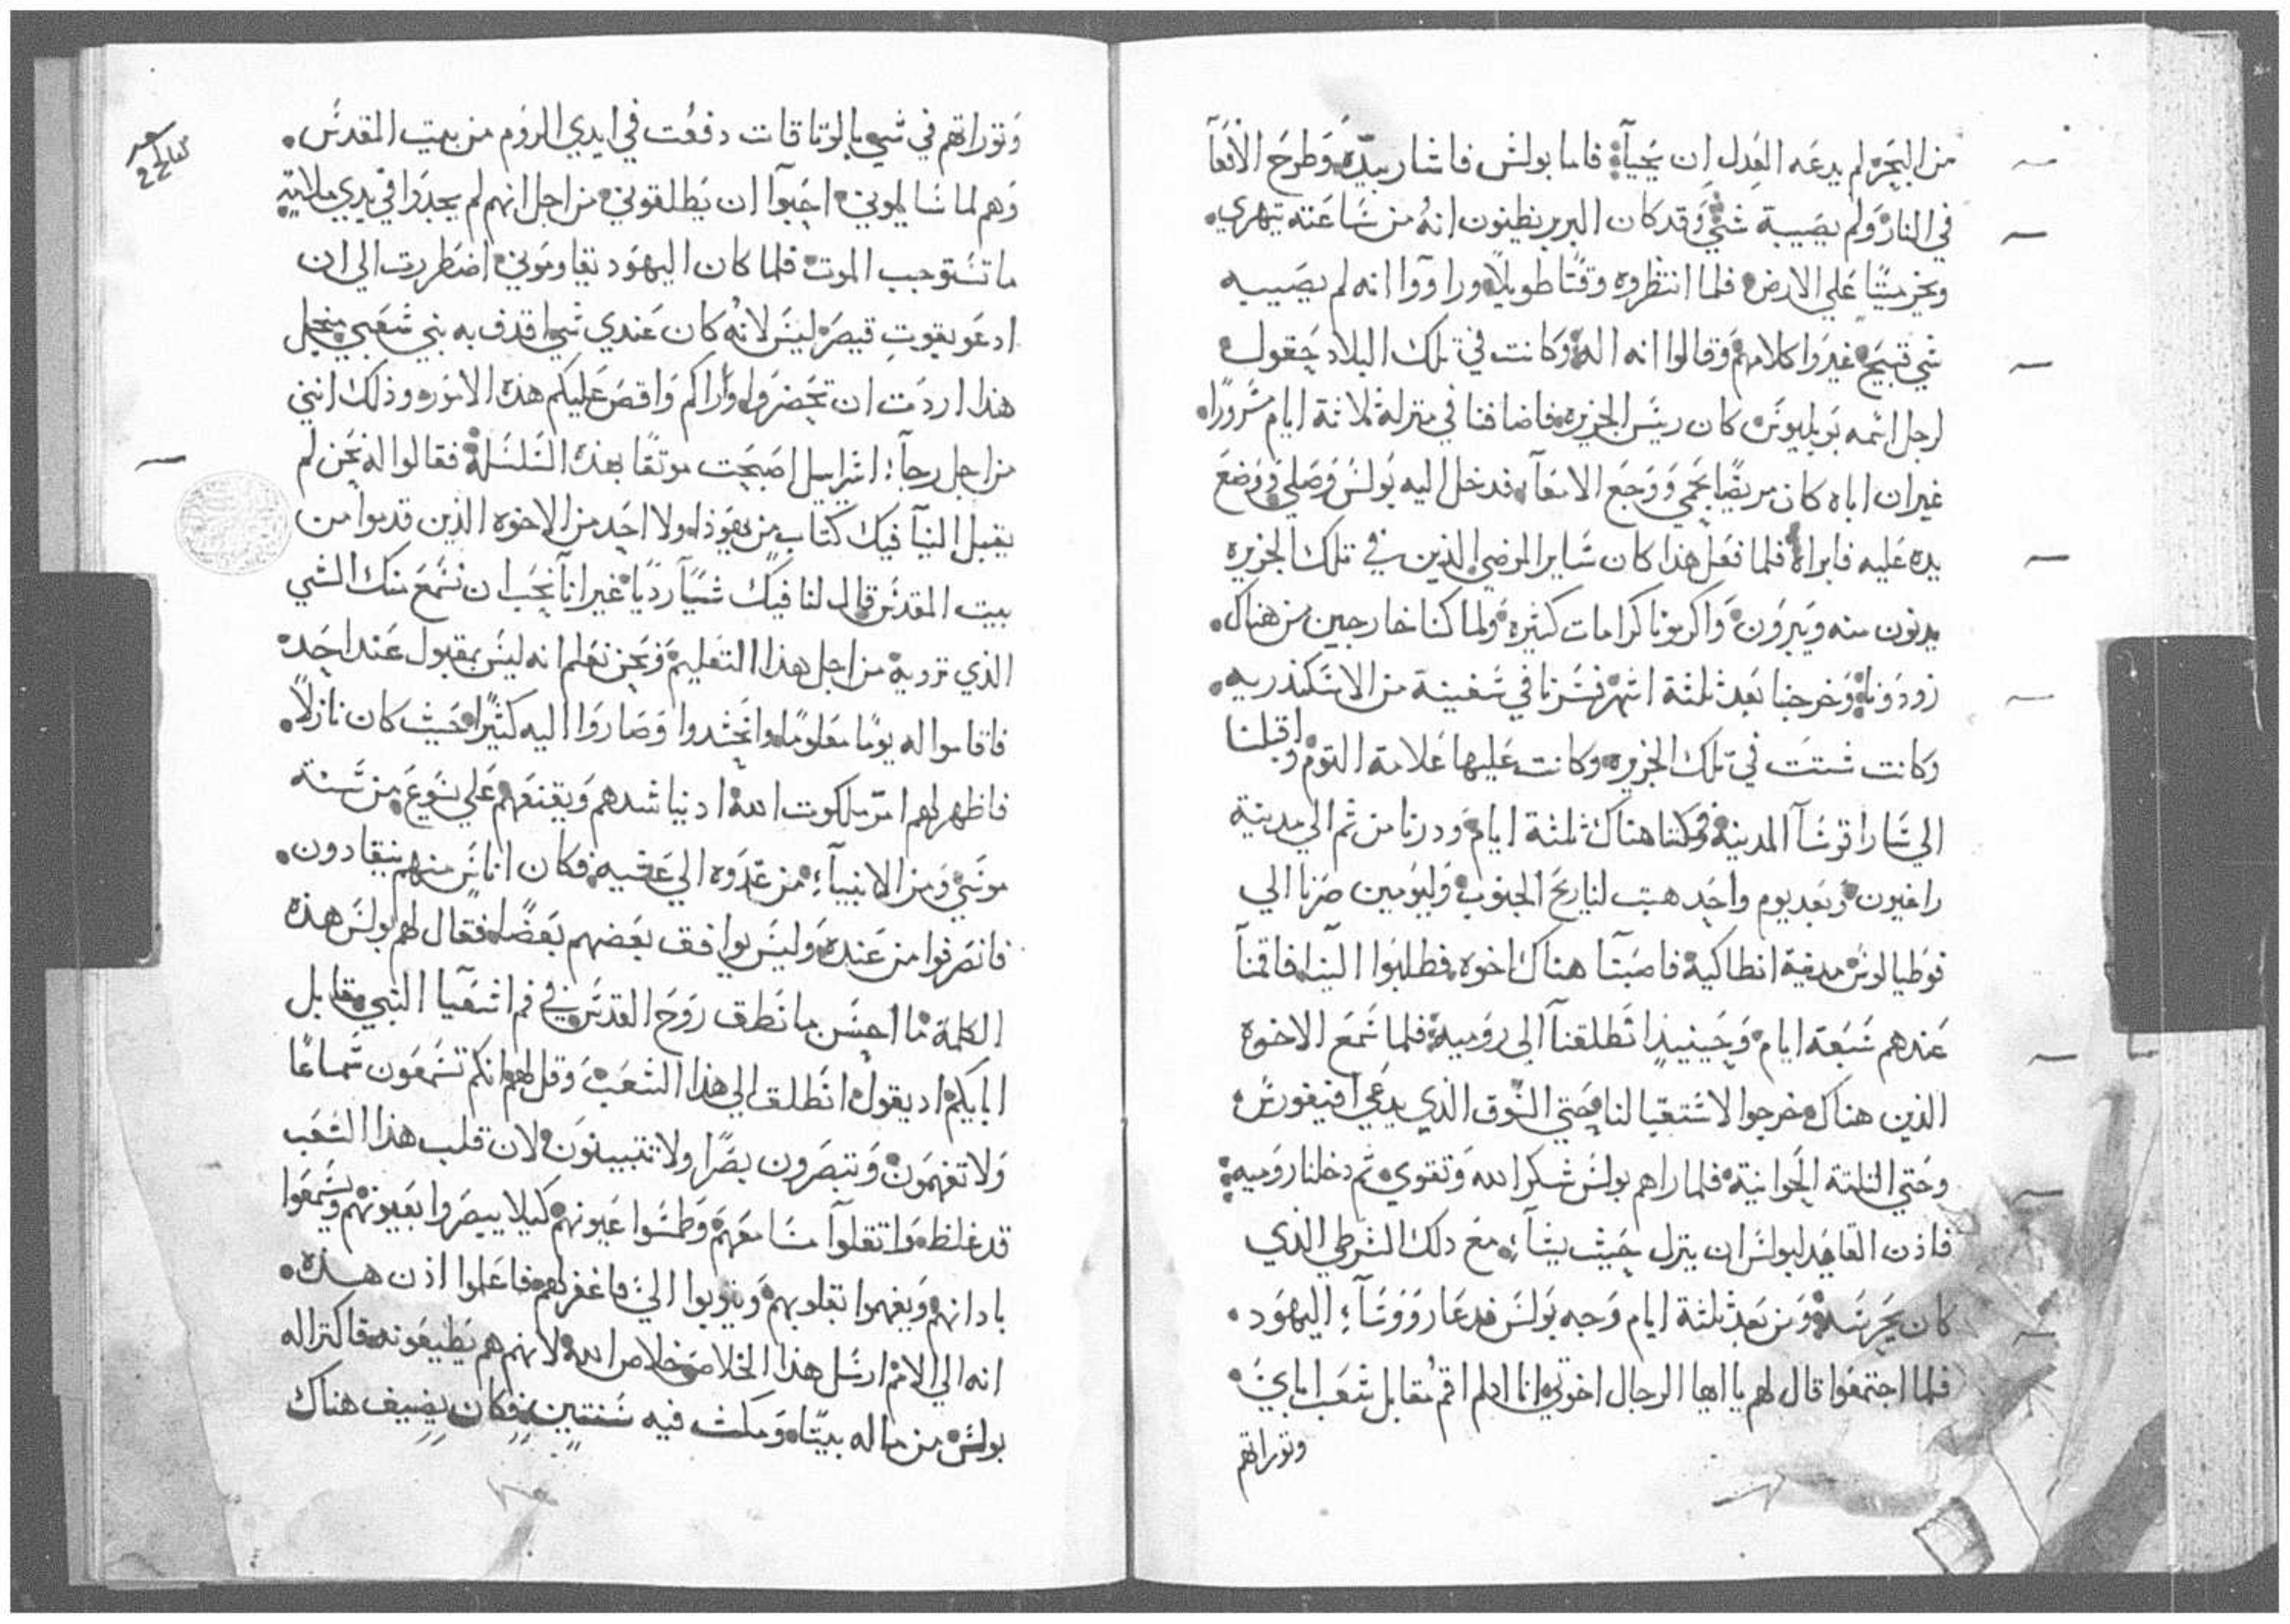 من البحر لم يدعه العدل ان يحيآ فاما بولش فاشار بيده وطرح الافعآ
في النار ولم يصيبة شي وقد كان البربر يظنون انه من شاعته يتهري
ويخر ميتًا علي الارض فلما انتظروه وقتًا طويلًا وراووا انه لم يصيبه
شي قبيح غيروا كلامهم وقالوا انه اله وكانت في تلك البلاد حقول
لرجل اشمه بوبليوش كان رييس الجزيره فاضافنا في منزله ثلاثة ايام مشرورًا
غير ان اباه كان مريضًا بحمي ووجع الامعآ فدخل اليه بولش وصلي ووضع
يده عليه فابراه فلما فعل هذا كان شاير المرضي الذين في تلك الجزيره
يدنون منه ويبرون واكرمونا كرامات كثيره ولما كنا خارجين من هناك
زودونا وخرجنا بعد ثلثة اشهر فشرنا في شفينة من الاشكندريه
وكانت شتت في تلك الجزيره وكانت عليها علامة التوم واقبلنا
الي شاراقوشآ المدينه فمكثنا هناك ثلثة ايام ودرنا من ثم الي مدينة
راغيون وبعد يوم واحد هبت لنا ريح الجنوب وليومين صرنا الي
فوطيالوش مدينة انطاكية فاصبنا هناك اخوه فطلبوا الينا فاقمنآ
عندهم شبعة ايام وحينيذا نطلقنآ الي روميه فلما شمع الاخوه
الذين هناك خرجوا لاشتقبالنا حتي الشوق الذي يدعي افنيفورش
وحتي الثلثة الحوانية فلما راهم بولش شكر الله وتقوي ثم دخلنا روميه
فاذن القايد لبولش ان ينزل حيث يشآء مع دلك الشرطي الذي
كان يحرشه ومن بعد ثلثة ايام وجه بولش فدعا رووشآء اليهود
فلما اجتمعوا قال لهم يا ايها الرجال اخوتي انا اد لم اقم مقابل شعب اباي
وتوراتهم
وتوراتهم في شي بالوتاقات دفعت في ايدي الروم من بيت المقدش
وهم لما شالوني احبوآ ان يطلقوني من اجل انهم لم يجدوا في يدي ملامة
ما تشتوجب الموت فلما كان اليهود يقاوموني اضطررت الي ان
ادعو بقوت قيصر ليش لانه كان عندي شي اقدف به بني شعبي من اجل
هذا اردت ان تحضروا واراكم واقص عليكم هذه الامور وذلك انني
من اجل رجآء اشراييل اصبحت موثقًا بهذه الشلشلة فقالوا له نحن لم
يقبل الينآ فيك كتاب من يهوذا ولا احد من الاخوه الذين قدموا من
بيت المقدش قال لنا فيك شيآ رديًا غير انا نحب ان نشمع منك الشي
الذي ترويه من اجل هذا التعليم ونحن نعلم انه ليش بمقبول عند احد
فاقاموا له يومًا معلومًا وانحشدوا وصاروا اليه كثيرًا حيث كان نازلًا
فاظهر لهم امر ملكوت الله اد يناشدهم ويقنعهم علي يشوع من شنة
موشي ومن الانبيآء من غدوه الي عشيه فكان اناش منهم ينقادون
فانصرفوا من عنده وليش يوافق بعضهم بعضًا فقال لهم بولش هذه
الكلمة ما احشن ما نطق روح القدش في فم اشعيا النبي مقابل
ابايكم اد يقول انطلق الي هذا الشعب وقل لهم انكم تشمعون شماعًا
ولا تفهمون وتبصرون بصرًا ولا تتبينون لان قلب هذا الشعب
قد غلظ واثقلوآ مشامعهم وطمشوا عيونهم كيلا يبصروا بعيونهم ويشمعوا
بادانهم ويفهموا بقلوبهم ويتوبوا الي فاغفر لهم فاعلموا اذن هذه
انه الي الامم ارشل هذا الخلاص خلاص الله لانهم هم يطيعونه فاكترا له
بولش من ماله بيتًا ومكث فيه شنتين فكان يضيف هناك
22